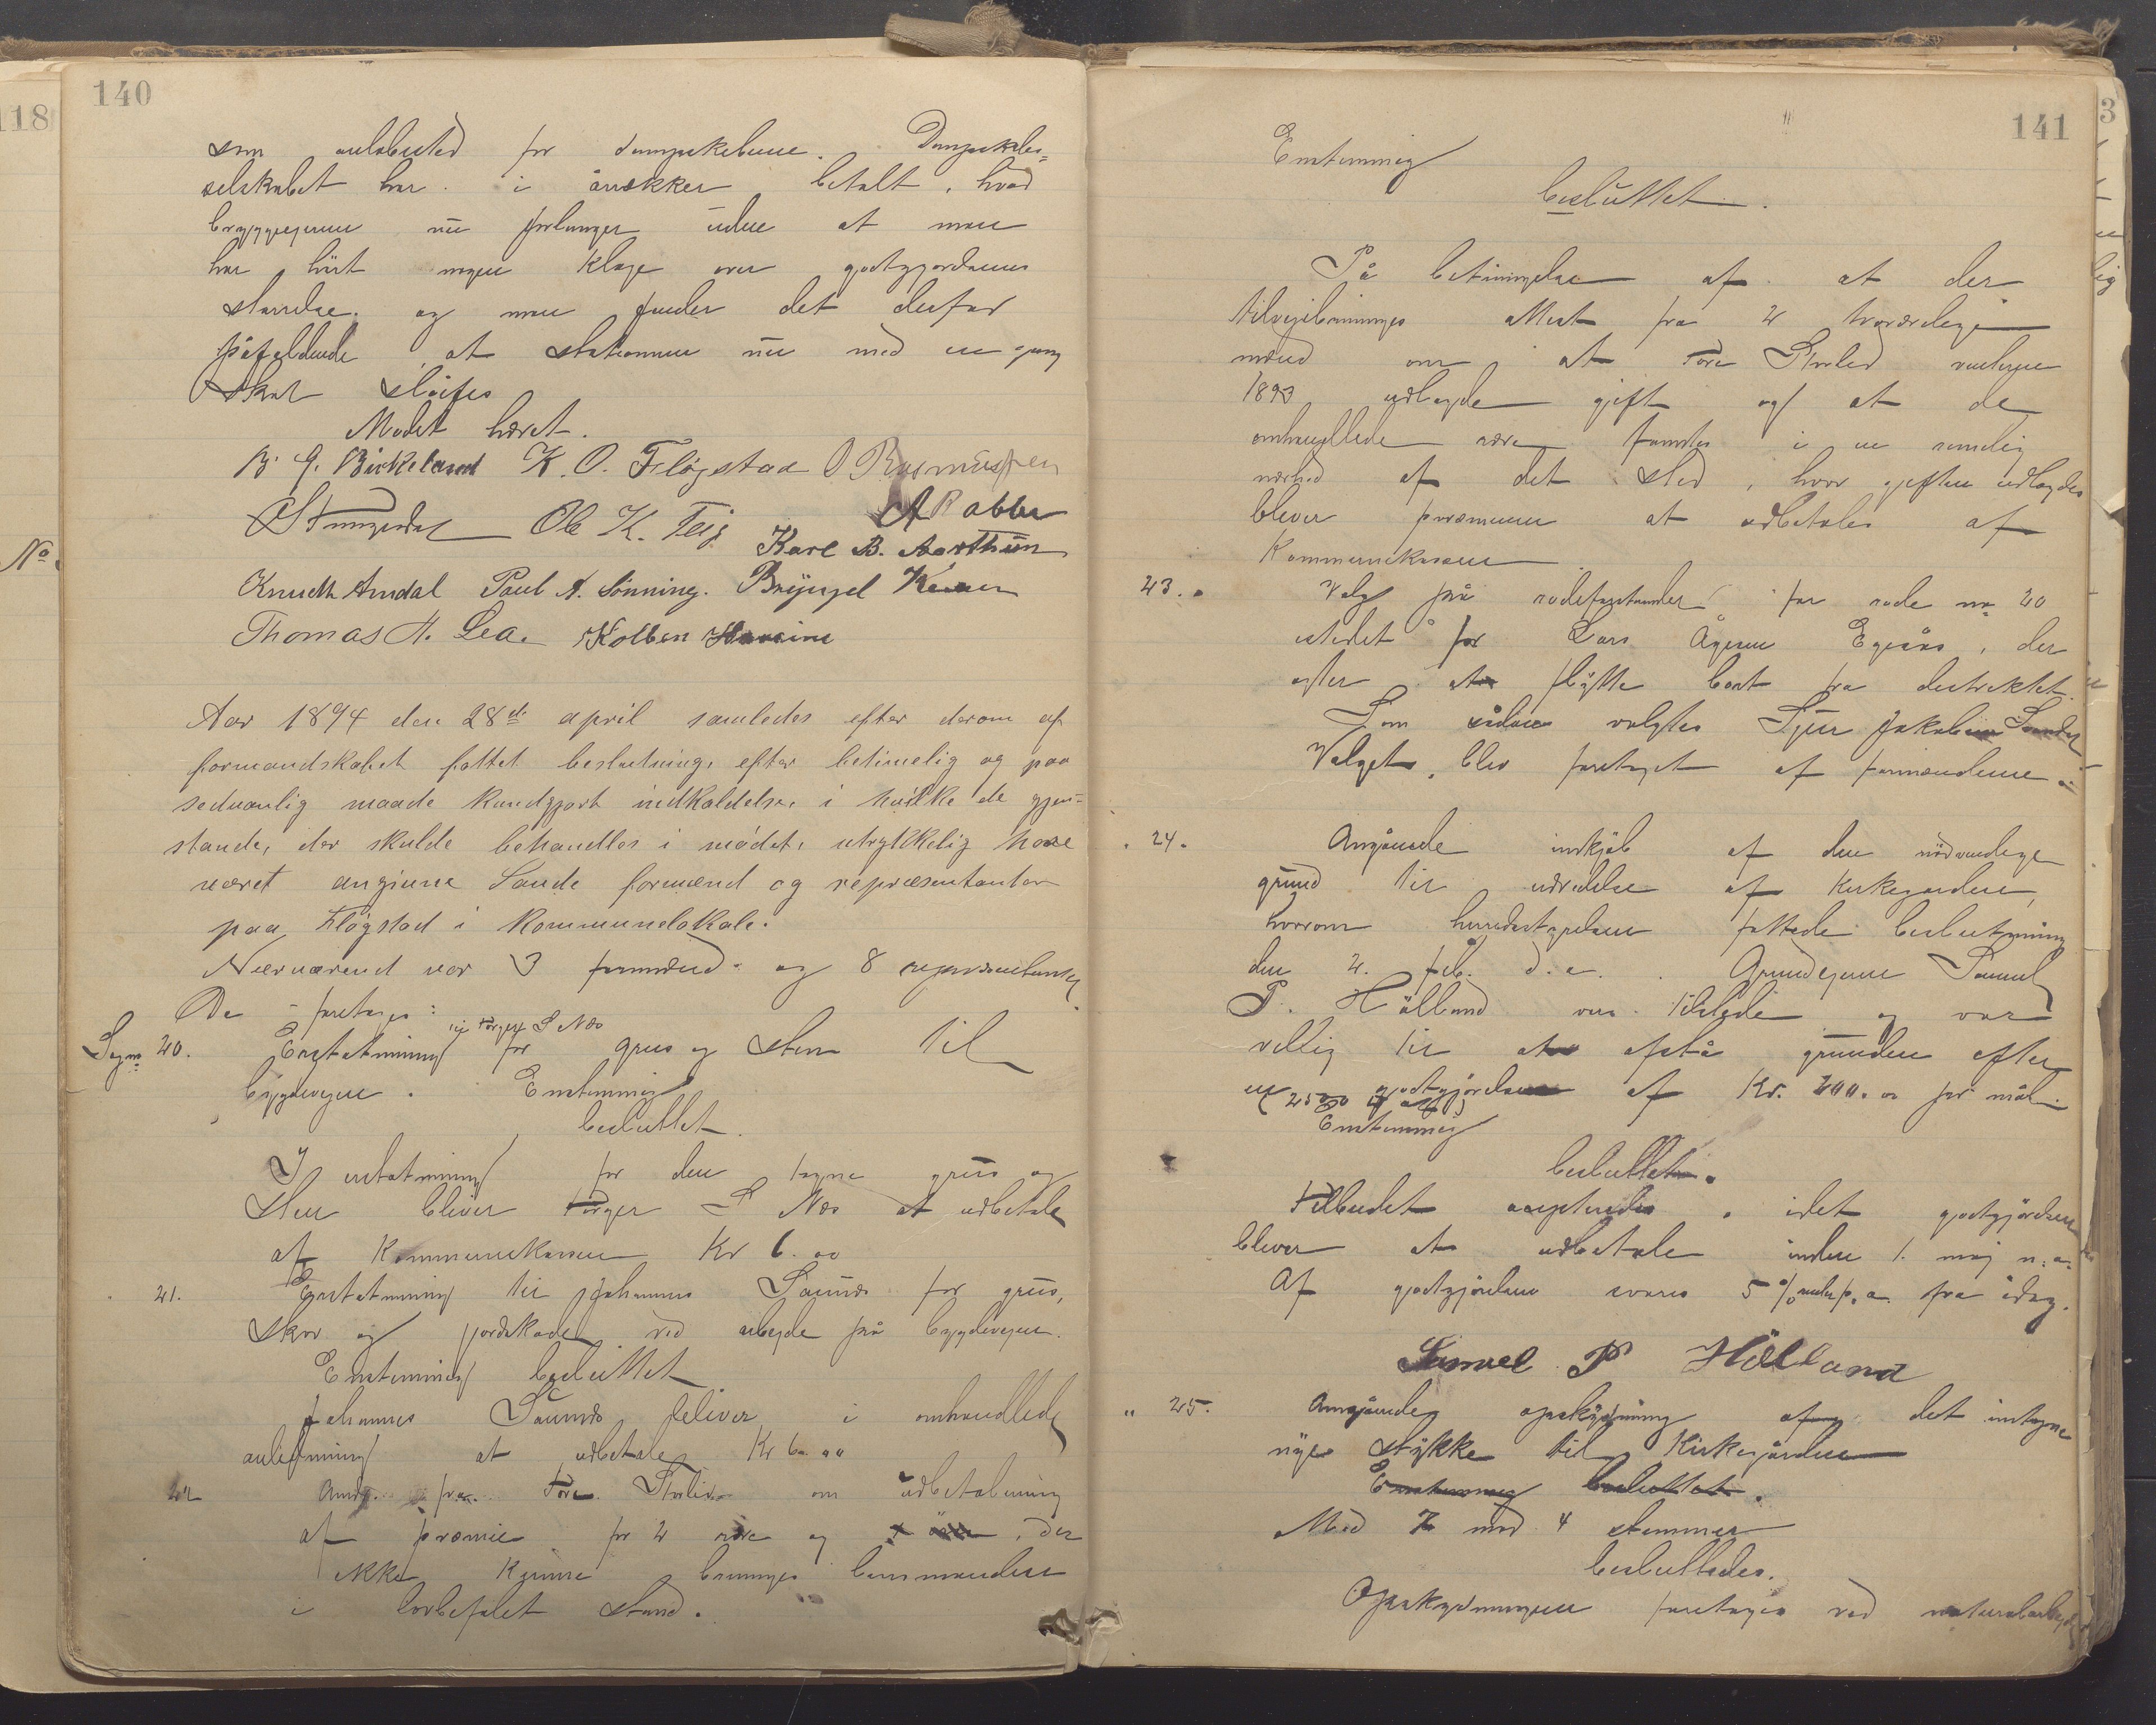 140
som anløbssted for dampskibene. Dampskibs=
selskabet har i årrækker betalt, hvad
bryggeejerne nu forlanger uden at man
har hørt nogen klage over godtgjørelsens
størrelse, og man finder det derfor
påfaldende, at stationen nu med en gang
skal sløifes
Mødet hævet.
B. G. Birkeland K. O. Fløgstad O Rasmussen
Ole K. Teig A Rabbe
Karl B. Aarthun
Knudth Amdal Paul A. Lønning. Brynjel
Thomas H. Lea. Kolben
No
Aar 1894 den 28de april samledes efter derom af
formandskabet fattet beslutning, efter betimelig og paa
sedvanlig maade kundgjort indkaldelse, i hvilke de gjen=
stande, der skulde behandles i mødet, utrykkelig have
været angivne Saude formænd og repræsentanter
paa Fløgstad i kommunelokale.
Nærværend var 3 formænd og 8 repræsentanter
De foretoges:
Sagno 20. Erstatning til Torger S Næs for grus og sten til
bygdeveien. Enstemmig
besluttet.
I erstatning for den tagne grus og
sten bliver Torger S Næs at udbetale
af Kommunekassen Kr 6.00
21. Erstatning til Johannes Saunds for grus,
skov og jordskade ved arbeide på bygdeveien.
Enstemmig besluttet
Johannes Saunds bliver i omhandlede
anledning at udbetale Kr 6.00
22 Andr. fra Tore Storlid om udbetalning
af præmie for 2 ræve og, der
ikke kunne bringes lensmanden
i lovbefalet stand.
141
Enstemmig
besluttet.
På betingelse af at der
tilveiebringes attest fra 2 troværdige
mænd om at Tore Storlid vinteren
1893 udlagde gift og at de
omhandlede ræve fandtes i en rimelig
nærhed af det sted, hvor giften udlagdes
bliver præmien at udbetales af
Kommunekassen.
23. Valg på rodeforstander for rode no 20
istedet for Lars Ågesen Egeås, der
agter at flytte bort fra distriktet.
Som sådan valgtes Sjur Jakobsen
Valget blev foretaget af formændene
24. Angående indkjøb af den nødvendige
grund til udvidelse af kirkegården,
hvorom herredsstyrelsen fattede beslutning
den 2. feb. d.a. Grundeieren Samuel
P. Hålland var tilstede og var
villig til at afstå grunden efter
en godtgjørelse af Kr. 200.00 per mål.
Enstemmig
besluttet.
Tilbudet accepteredes, idet godtgjørelsen
bliver at udbetale inden 1. maj n.a.
Af godtgjørelsen svares 5 % rente p.a. fra idag.
Samuel P Hålland
" 25. Angående opskydning af det indtagne
nye stykke til Kirkegården
Enstemmig besluttet.
Med 7 mod 4 stemmer
besluttedes.
Opskydningen foretages ved naturalarbeide